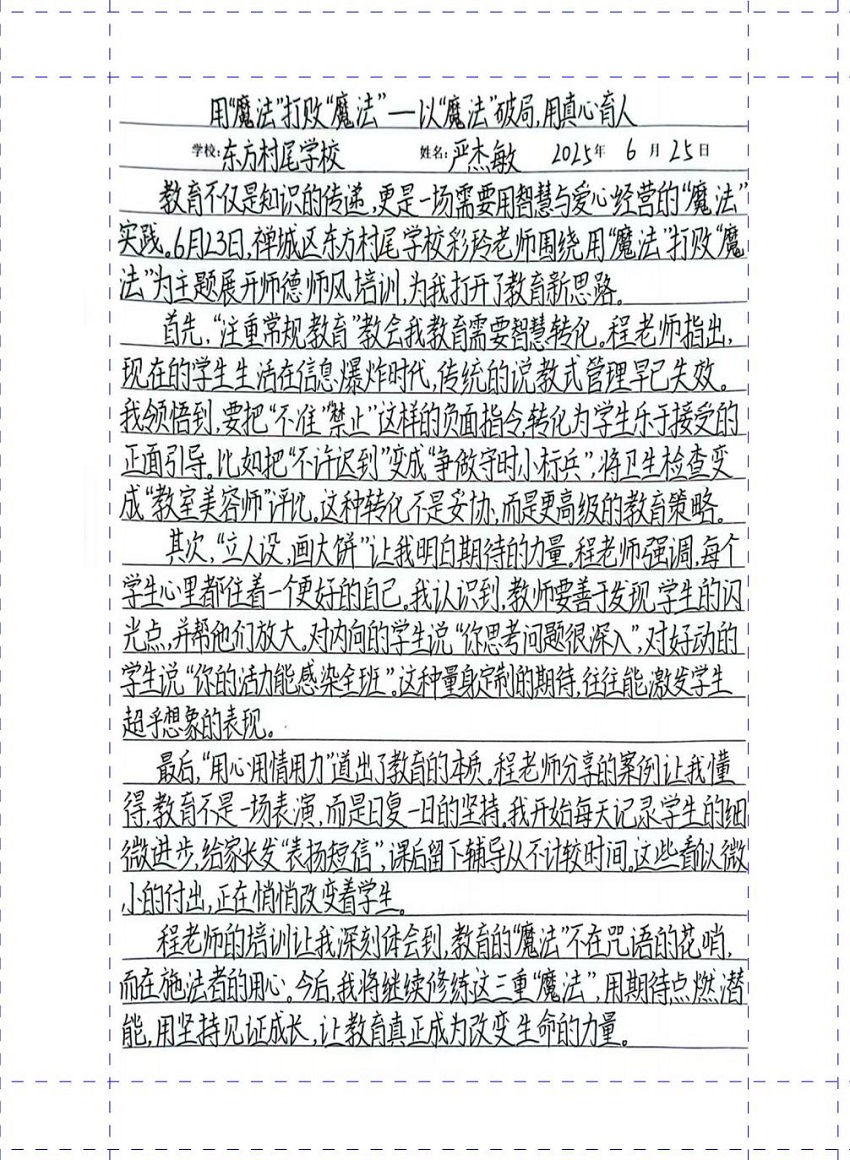 用“魔法”打败“魔法”—以“魔法”破局,用真心育人
学校:东方村尾学校 姓名:严杰敏 2025年 6 月 25日
教育不仅是知识的传递,更是一场需要用智慧与爱心经营的“魔法”
实践。6月23日,禅城区东方村尾学校彩玲老师围绕用“魔法”打败“魔
法”为主题展开师德师风培训,为我打开了教育新思路。
首先,“注重常规教育”教会我教育需要智慧转化。程老师指出,
现在的学生生活在信息爆炸时代,传统的说教式管理早已失效。
我领悟到,要把“不准”“禁止”这样的负面指令,转化为学生乐于接受的
正面引导。比如把“不许迟到”变成“争做守时小标兵”,将卫生检查变
成“教室美容师”评比。这种转化不是妥协,而是更高级的教育策略。
其次,“立人设,画大饼”让我明白期待的力量。程老师强调,每个
学生心里都住着一个更好的自己。我认识到,教师要善于发现学生的闪
光点,并帮他们放大。对内向的学生说“你思考问题很深入”,对好动的
学生说“你的活力能感染全班”。这种量身定制的期待,往往能激发学生
超乎想象的表现。
最后,“用心用情用力”道出了教育的本质。程老师分享的案例让我懂
得,教育不是一场表演,而是日复一日的坚持。我开始每天记录学生的细
微进步,给家长发“表扬短信”,课后留下辅导从不计较时间。这些看似微
小的付出,正在悄悄改变着学生。
程老师的培训让我深刻体会到,教育的“魔法”不在咒语的花哨,
而在施法者的用心。今后,我将继续修练这三重“魔法”,用期待点燃潜
能,用坚持见证成长,让教育真正成为改变生命的力量。